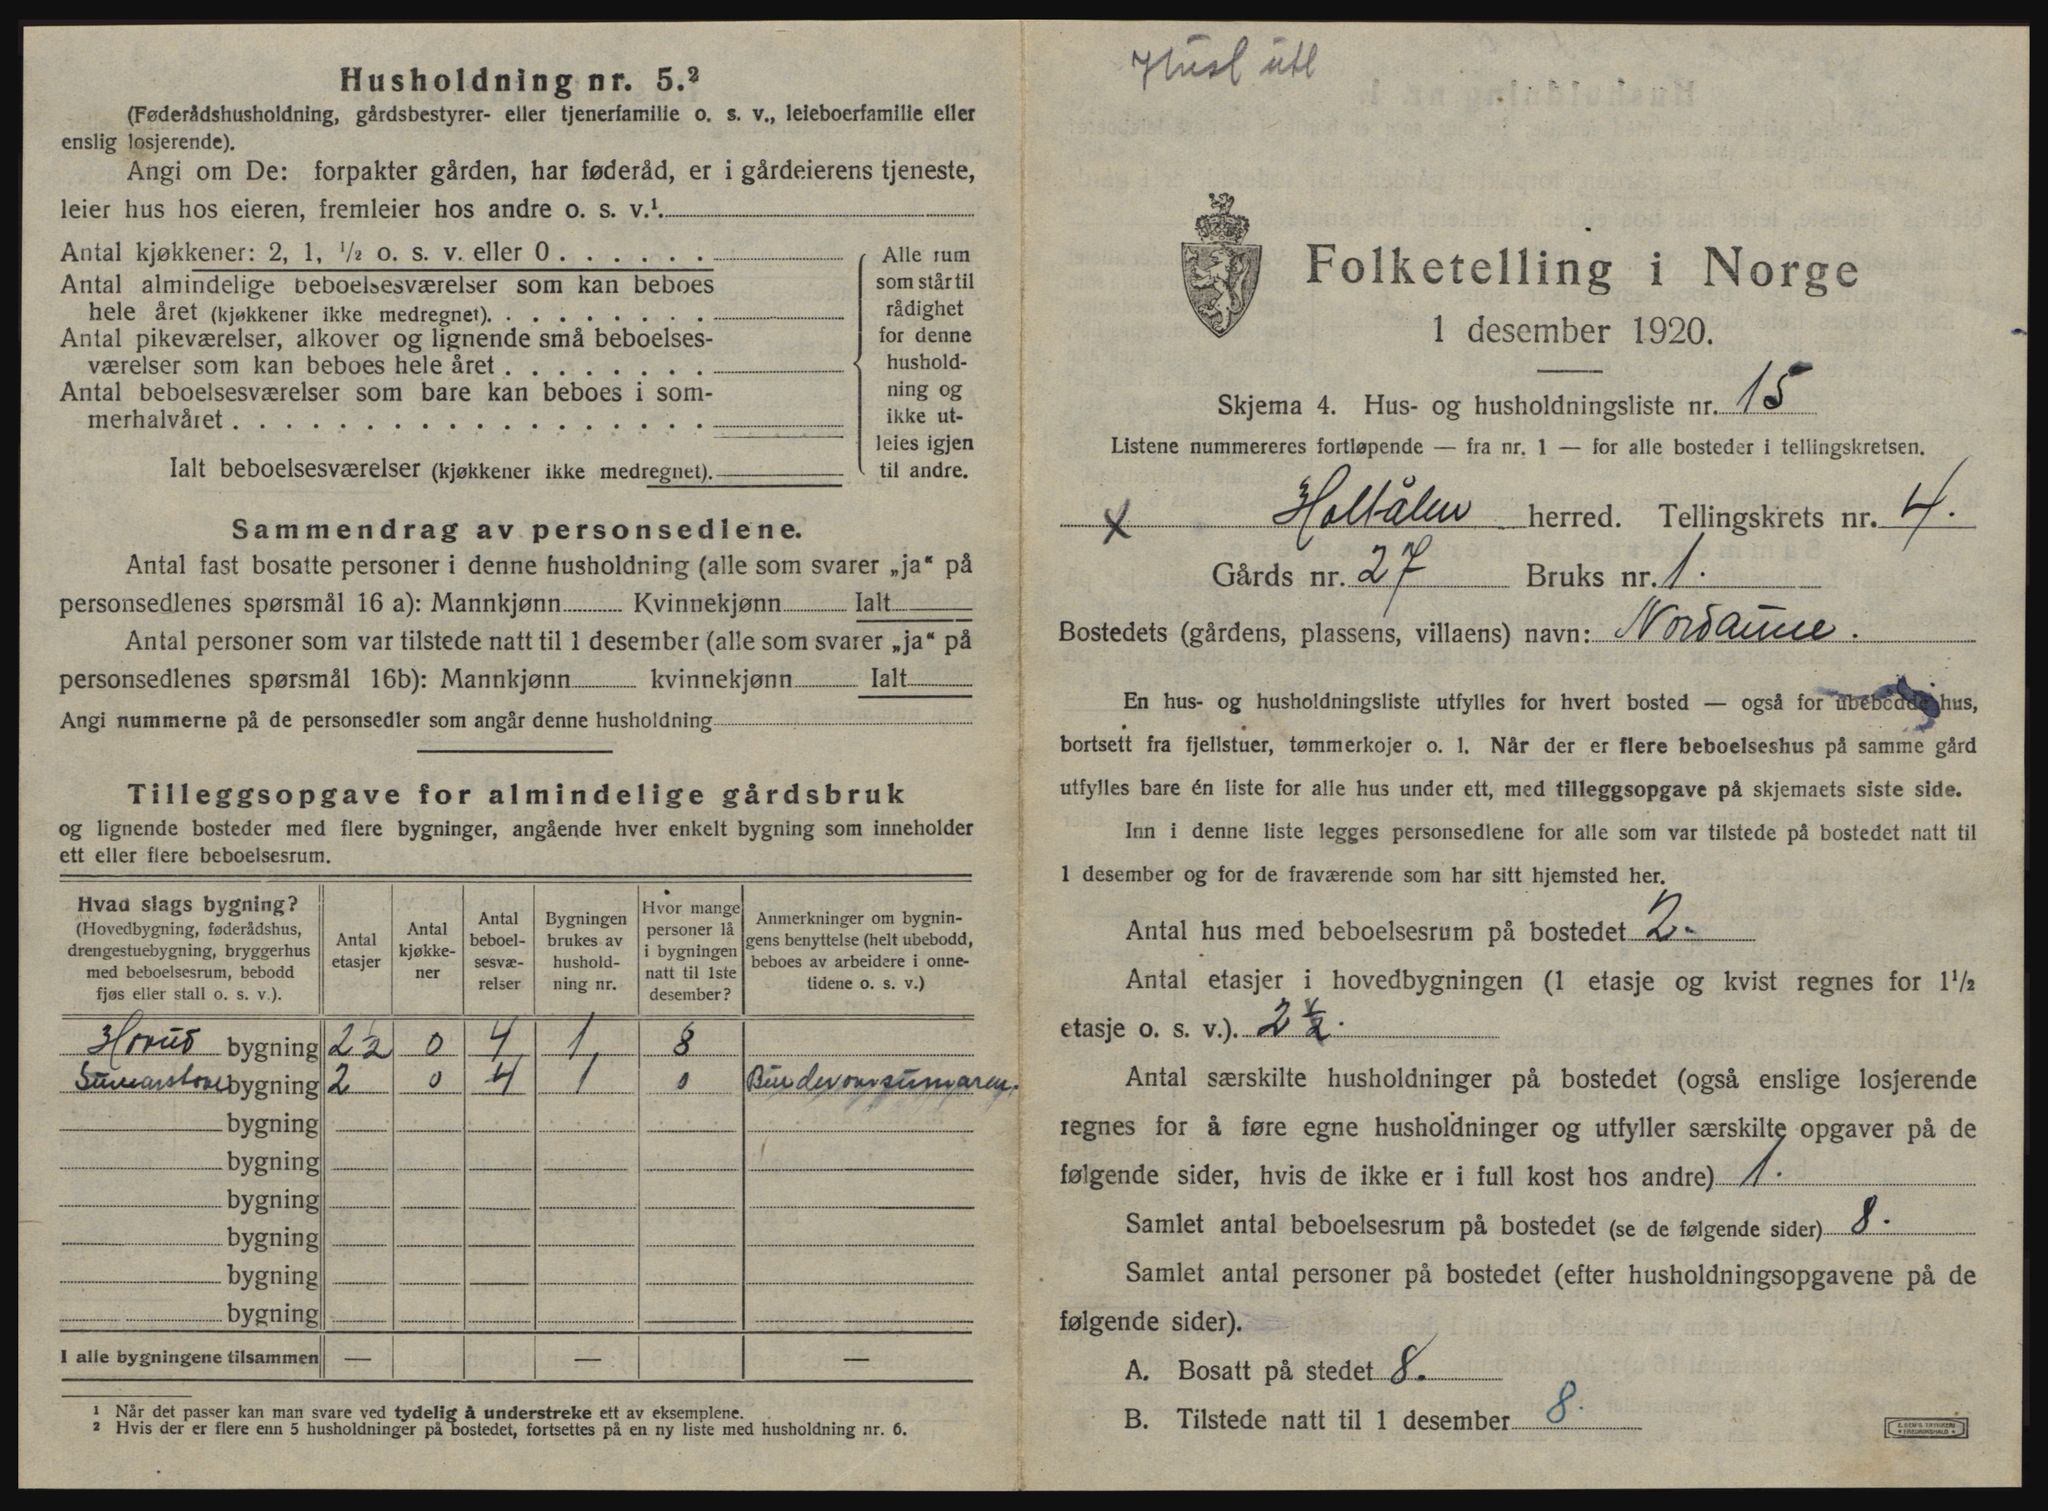 Husholdning nr. 5.²
(Føderådshusholdning, gårdsbestyrer- eller tjenerfamilie o. s. v., leieboerfamilie eller
enslig losjerende).
Angi om De: forpakter gården, har føderåd, er i gårdeierens tjeneste,
leier hus hos eieren, fremleier hos andre o. s. v.¹
Antal kjøkkener: 2, 1, ½ o. s. v. eller 0
Antal almindelige beboelsesværelser som kan beboes
hele året (kjøkkener ikke medregnet).
Antal pikeværelser, alkover og lignende små beboelses-
værelser som kan beboes hele året
Antal beboelsesværelser som bare kan beboes i som-
merhalvåret
Ialt beboelsesværelser (kjøkkener ikke medregnet).
Alle rum
som står til
rådighet
for denne
hushold-
ning og
ikke ut-
leies igjen
til andre.
Sammendrag av personsedlene.
Antal fast bosatte personer i denne husholdning (alle som svarer „ja“ på
personsedlenes spørsmål 16 a): Mannkjønn Kvinnekjønn Ialt
Antal personer som var tilstede natt til 1 desember (alle som svarer „ja“ på
personsedlenes spørsmål 16b): Mannkjønn kvinnekjønn Ialt
Angi nummerne på de personsedler som angår denne husholdning
Tilleggsopgave for almindelige gårdsbruk
og lignende bosteder med flere bygninger, angående hver enkelt bygning som inneholder
ett eller flere beboelsesrum.
Hvad slags bygning?
(Hovedbygning, føderådshus,
drengestuebygning, bryggerhus
med beboelsesrum, bebodd
fjøs eller stall o. s. v.).
Antal
etasjer
Antal
kjøkke-
ner
Antal
beboel-
sesvæ-
relser
Bygningen
brukes av
hushold-
ning nr.
Hvor mange
personer lå
i bygningen
natt til 1ste
desember?
Anmerkninger om bygnin-
gens benyttelse (helt ubebodd,
beboes av arbeidere i onne-
tidene o. s. v.)
Hovud bygning 2½ 0 4 1 8
Sumarstove bygning 2 0 4 1 0 Bur der om sumaren.
bygning
bygning
bygning
bygning
bygning
bygning
I alle bygningene tilsammen — — —
¹ Når det passer kan man svare ved tydelig å understreke ett av eksemplene.
² Hvis der er flere enn 5 husholdninger på bostedet, fortsettes på en ny liste med husholdning nr. 6.
Husl utl
Folketelling i Norge
1 desember 1920.
Skjema 4. Hus- og husholdningsliste nr. 15
Listene nummereres fortløpende — fra nr. 1 — for alle bosteder i tellingskretsen.
x Holtålen herred. Tellingskrets nr. 4.
Gårds nr. 27 Bruks nr. 1.
Bostedets (gårdens, plassens, villaens) navn: Nordaune.
En hus- og husholdningsliste utfylles for hvert bosted — også for ubebodde hus,
bortsett fra fjellstuer, tømmerkojer o. l. Når der er flere beboelseshus på samme gård
utfylles bare én liste for alle hus under ett, med tilleggsopgave på skjemaets siste side.
Inn i denne liste legges personsedlene for alle som var tilstede på bostedet natt til
1 desember og for de fraværende som har sitt hjemsted her.
Antal hus med beboelsesrum på bostedet 2.
Antal etasjer i hovedbygningen (1 etasje og kvist regnes for 1½
etasje o. s. v.). 2½.
Antal særskilte husholdninger på bostedet (også enslige losjerende
regnes for å føre egne husholdninger og utfyller særskilte opgaver på de
følgende sider, hvis de ikke er i full kost hos andre) 1.
Samlet antal beboelsesrum på bostedet (se de følgende sider) 8.
Samlet antal personer på bostedet (efter husholdningsopgavene på de
følgende sider).
A. Bosatt på stedet 8.
B. Tilstede natt til 1 desember 8.